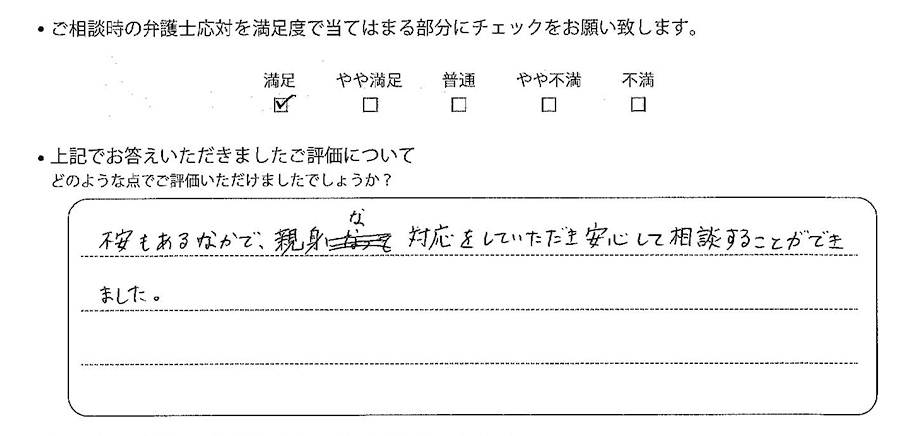 ・ご相談時の弁護士応対を満足度で当てはまる部分にチェックをお願い致します。
満足 やや満足 普通 やや不満 不満
☑ ☐ ☐ ☐ ☐
・上記でお答えいただきましたご評価について
どのような点でご評価いただけましたでしょうか?
不安もあるなかで、親身な対応をしていただき安心して相談することができ
ました。